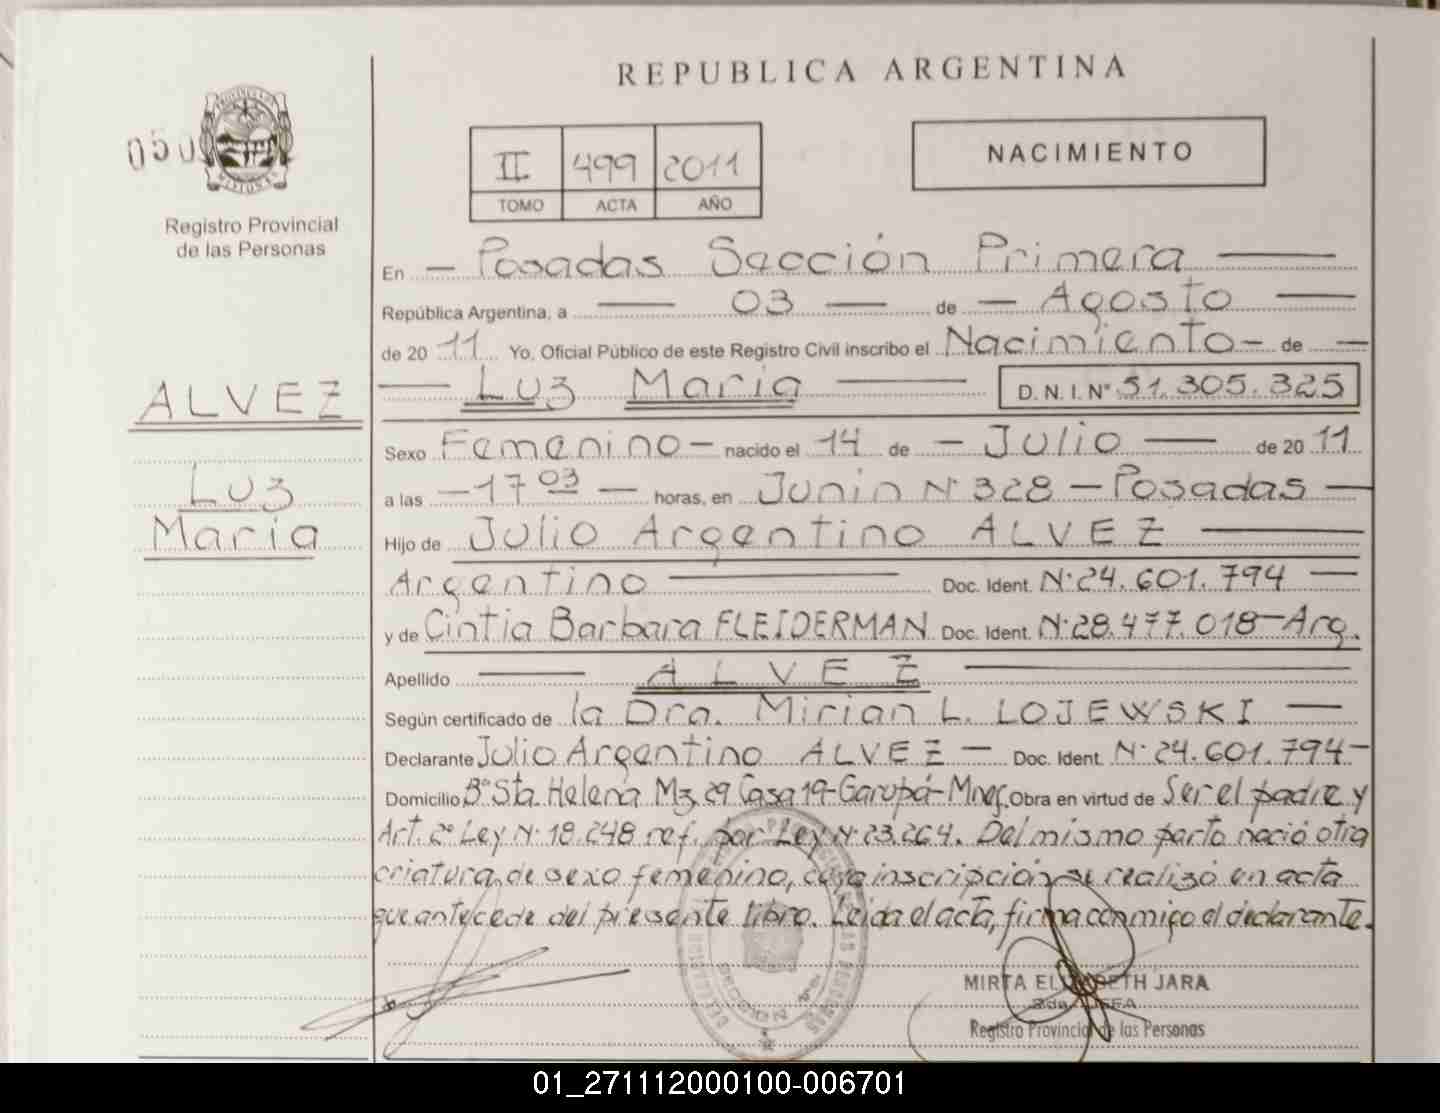 REPUBLICA ARGENTINA
050
PROVINCIA DE
MISIONES
Registro Provincial
de las Personas
II 499 2011
TOMO ACTA AÑO
NACIMIENTO
En — Posadas Sección Primera —
República Argentina, a — 03 — de — Agosto —
de 20 11 Yo, Oficial Público de este Registro Civil inscribo el Nacimiento — de —
— Luz María — D.N.I. Nº 51.305.325
ALVEZ
Luz
María
Sexo Femenino — nacido el 14 de — Julio — de 20 11
a las — 17 03 — horas, en Junín Nº 328 — Posadas —
Hijo de Julio Argentino ALVEZ —
Argentino — Doc. Ident. Nº 24.601.794 —
y de Cintia Barbara FLEIDERMAN Doc. Ident. Nº 28.477.018 — Arg.
Apellido — ALVEZ —
Según certificado de la Dra. Mirian L. LOJEWSKI —
Declarante Julio Argentino ALVEZ — Doc. Ident. Nº 24.601.794 —
Domicilio Bº Sta. Helena Mz 29 Casa 19 - Garupá - Mnes. Obra en virtud de Ser el padre y
Art. 2º Ley Nº 18.248 ref. por Ley Nº 23.264. Del mismo parto nació otra
criatura, de sexo femenino, cuya inscripción se realizó en acta
que antecede del presente libro. Leída el acta, firma conmigo el declarante.
MIRTA ELIZABETH JARA
Registro Provincial de las Personas
01_271112000100-006701